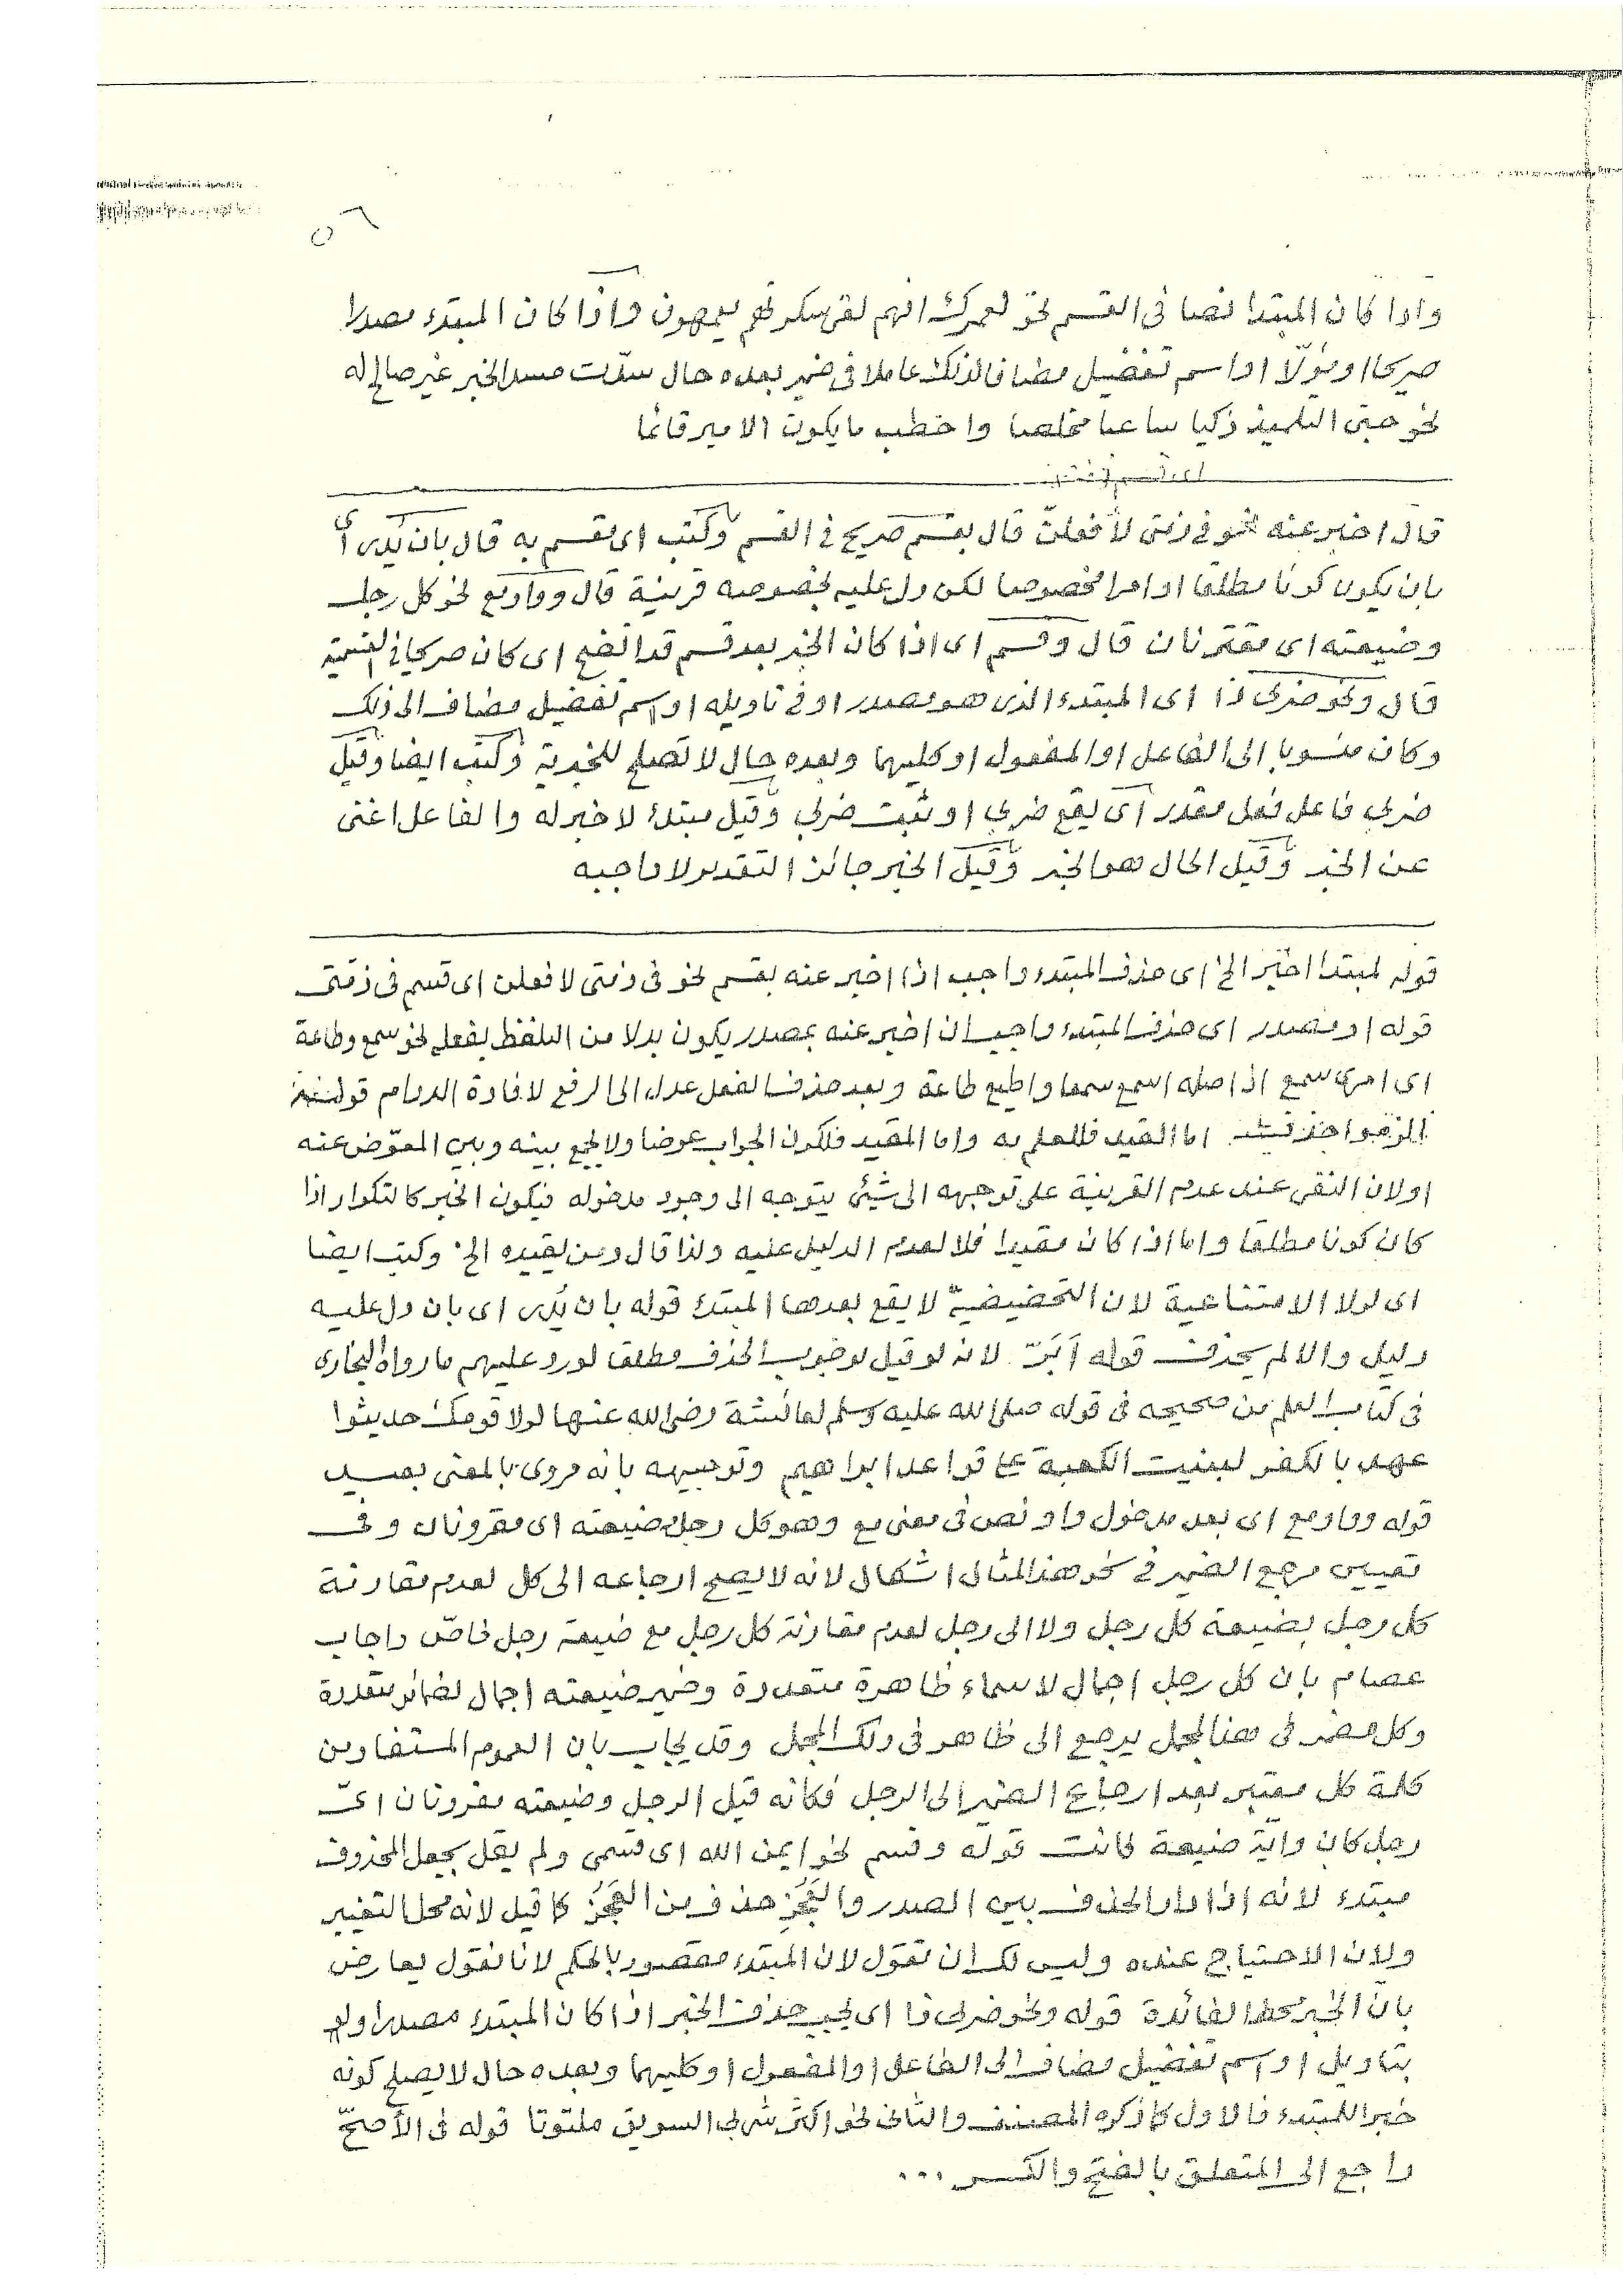 ٥٦
واذا كان المبتدا نصا فى القسم نحو لعمرك انهم لفى سكرتهم يعمهون واذا كان المبتدء مصدرا
صريحا او مؤولا او اسم تفضيل مضافا لذلك عاملا فى ضمير بعده حال سدّت مسد الخبر غير صالح له
نحو التلميذ زكيا ساعيا مخلصا واخطب ما يكون الامير قائما
قال اخبر عنه نحو فى ذمتى لأفعلنّ قال بقسم صريح فى القسم وكتب اى نقسم به قال بان يُدرى أى
بان يكون كونا مطلقا او امرا مخصوصا لكن دل عليه بخصوصه قرينة قال وواو مع نحو كل رجل
وضيعته اى مقترنان قال وقسم اى اذا كان الخبر بعد قسم قد اتضح اى كان صريحا فى القسمية
قال ونحو ضربى ذا اى المبتدء الذى هو مصدر او فى تاويله او اسم تفضيل مضاف الى ذلك
وكان منسوبا الى الفاعل او المفعول او كليهما وبعده حال لا تصلح للخبرية وكتب ايضا وقيل
ضربى فاعل فعل مقدر أى يقع ضربى او ثبت ضربى وقيل مبتدء لا خبر له والفاعل اغنى
عن الخبر وقيل الحال هو الخبر وقيل الخبر جائز التقدير لا واجبه
قوله لمبتدا اخبر الخ اى حذف المبتدء واجب اذا اخبر عنه بقسم نحو فى ذمتى لافعلن اى قسم فى ذمتى
قوله او مصدر اى حذف المبتدء واجب ان اخبر عنه بمصدر يكون بدلا من التلفظ بفعله نحو سمع وطاعة
اى امرى سمع اذ اصله اسمع سمعا واطيع طاعة وبعد حذف الفعل عدل الى الرفع لافادة الدوام قوله
اما القيد فللعلم به واما المقيد فلكون الجواب عوضا ولا يجمع بينه وبين المعوّض عنه
اولان النفى عند عدم القرينة على توجهه الى شيئ يتوجه الى وجود مدخوله فيكون الخبر كالتكرار اذا
كان كونا مطلقا واما اذا كان مقيدا فلا لعدم الدليل عليه ولذا قال ومن يقيده الخ وكتب ايضا
اى لولا الامتناعية لان التحضيضيّة لا يقع بعدها المبتدء قوله بان يُدرى اى بان دل عليه
دليل والا لم يحذف قوله أبَرّ لانه لو قيل بوجوب الحذف مطلقا لورد عليهم ما رواه البخارى
فى كتاب العلم من صحيحه فى قوله صلى الله عليه وسلم لعائشة رضى الله عنها لولا قومك حديثوا
عهد بالكفر لبنيت الكعبة على قواعد ابراهيم وتوجيهه بانه مروى بالمعنى بعيد
قوله وواو مع اى بعد مدخول واو نص فى معنى مع وهو كل رجل وضيعته اى مقرونان وفى
تعيين مرجع الضمير فى نحو هذا المثال اشكال لانه لا يصح ارجاعه الى كل لعدم مقارنة
كل رجل بضيعة كل رجل ولا الى رجل لعدم مقارنة كل رجل مع ضيعة رجل خاصّ واجاب
عصام بان كل رجل اجمال لاسماء ظاهرة متعددة وضمير ضيعته اجمال لضمائر متعددة
وكل مضمر فى هذا المجمل يرجع الى ظاهر فى ذلك المجمل وقد يجاب بان العموم المستفاد من
كلمة كل معتبر بعد ارجاع الضمير الى الرجل فكانه قيل الرجل وضيعته مقرونان اىّ
رجل كان وايّة ضيعة كانت قوله وقسم نحو ايمن الله اى قسمى ولم يقل بجعل المحذوف
مبتدء لانه اذا دار الحذف بين الصدر والعَجُزِ حذف من العَجُزِ كما قيل لانه محل التغيير
ولان الاحتياج عنده وليس لك ان تقول لان المبتدء مقصور بالحكم لانا نقول يعارض
بان الخبر محط الفائدة قوله ونحو ضربى ذا اى يجب حذف الخبر اذا كان المبتدء مصدرا ولو
بتاويل او اسم تفضيل مضاف الى الفاعل او المفعول او كليهما وبعده حال لا يصلح كونه
خبرا للمبتدء فالاول كما ذكره المصنف والثانى نحو اكثر شربى السويق ملتوتا قوله فى الأصحّ
راجع الى المتعلق بالفتح والكسر ...